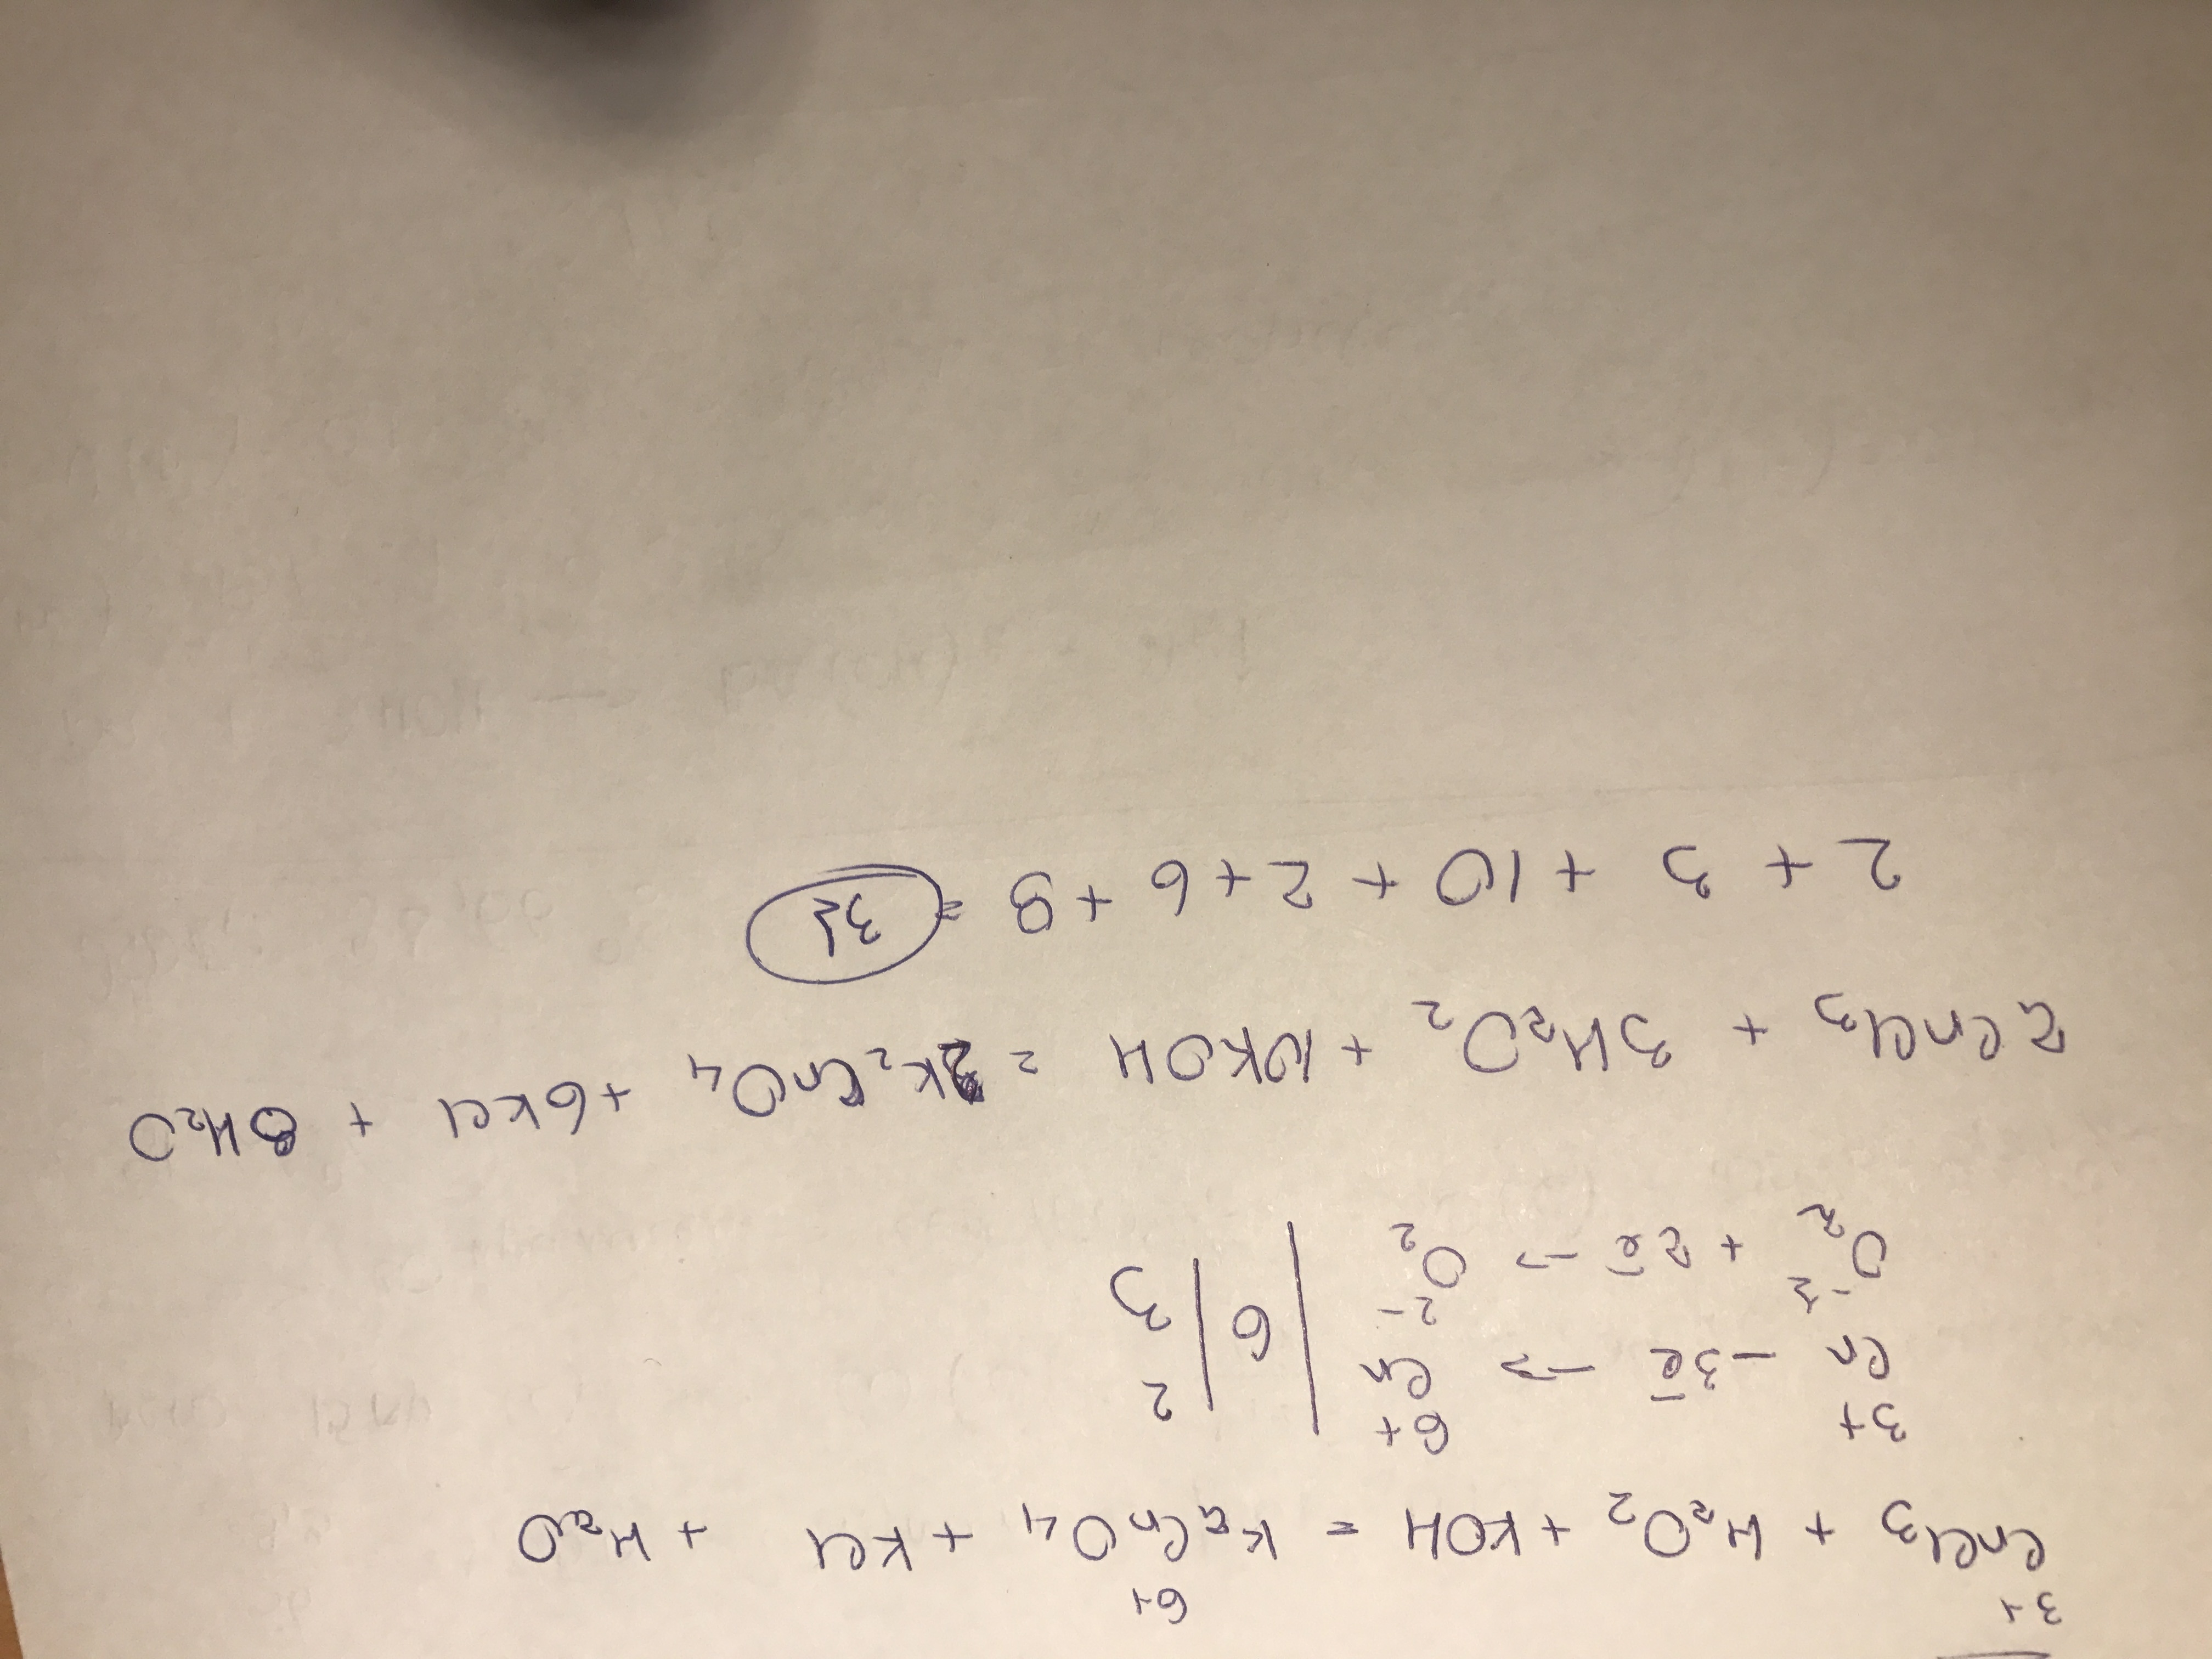 3+ 6+
CrCl₃ + H₂O₂ + KOH = K₂CrO₄ + KCl + H₂O
3+ 6+
Cr − 3ē → Cr | 6 | 2
-1 2-
O₂ + 2ē → O₂ 3
2CrCl₃ + 3H₂O₂ + 10KOH = 2K₂CrO₄ + 6KCl + 8H₂O
2 + 3 + 10 + 2 + 6 + 8 = 31